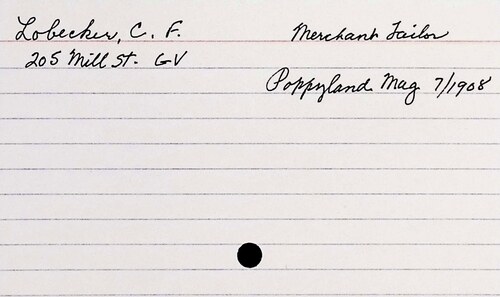 Lobecker, C. F.
Merchant Tailor
205 Mill St. GV
Poppyland Mag 7/1908